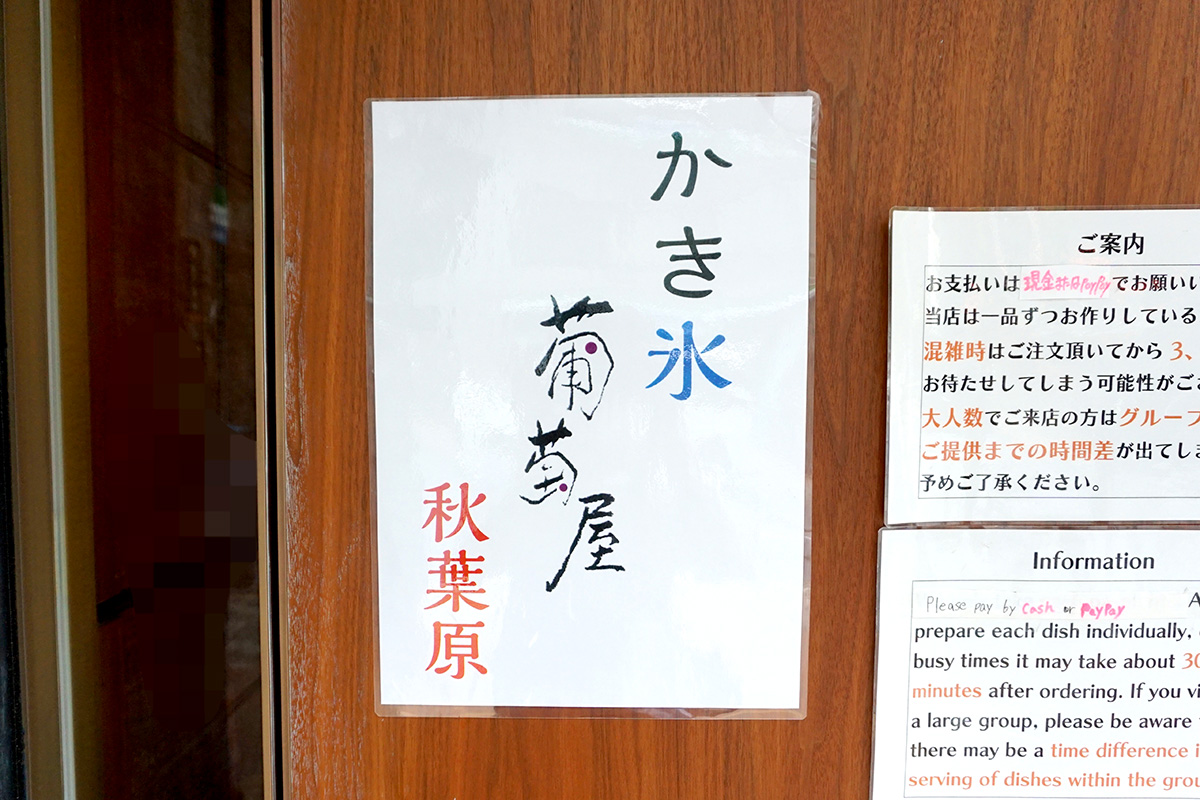 かき氷
葡萄屋
秋葉原
ご案内
お支払いは現金またはPayPayでお願いい
当店は一品ずつお作りしている
混雑時はご注文頂いてから 3、
お待たせしてしまう可能性がござ
大人数でご来店の方はグループ
ご提供までの時間差が出てしま
予めご了承ください。
Information
Please pay by Cash or PayPay
prepare each dish individually,
busy times it may take about 30
minutes after ordering. If you vi
a large group, please be aware
there may be a time difference i
serving of dishes within the grou